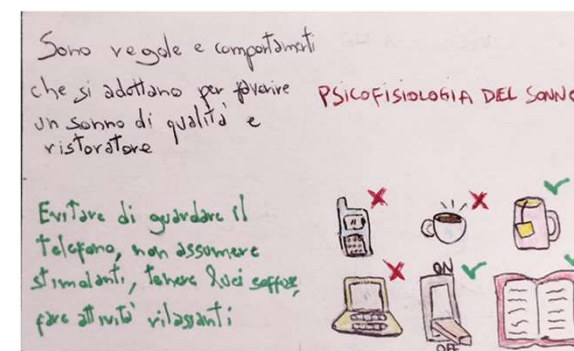 Sono regole e comportamenti
che si adottano per favorire
un sonno di qualità e
ristoratore
PSICOFISIOLOGIA DEL SONNO
Evitare di guardare il
telefono, non assumere
stimolanti, tenere luci soffuse,
fare attività rilassanti
ON
OFF